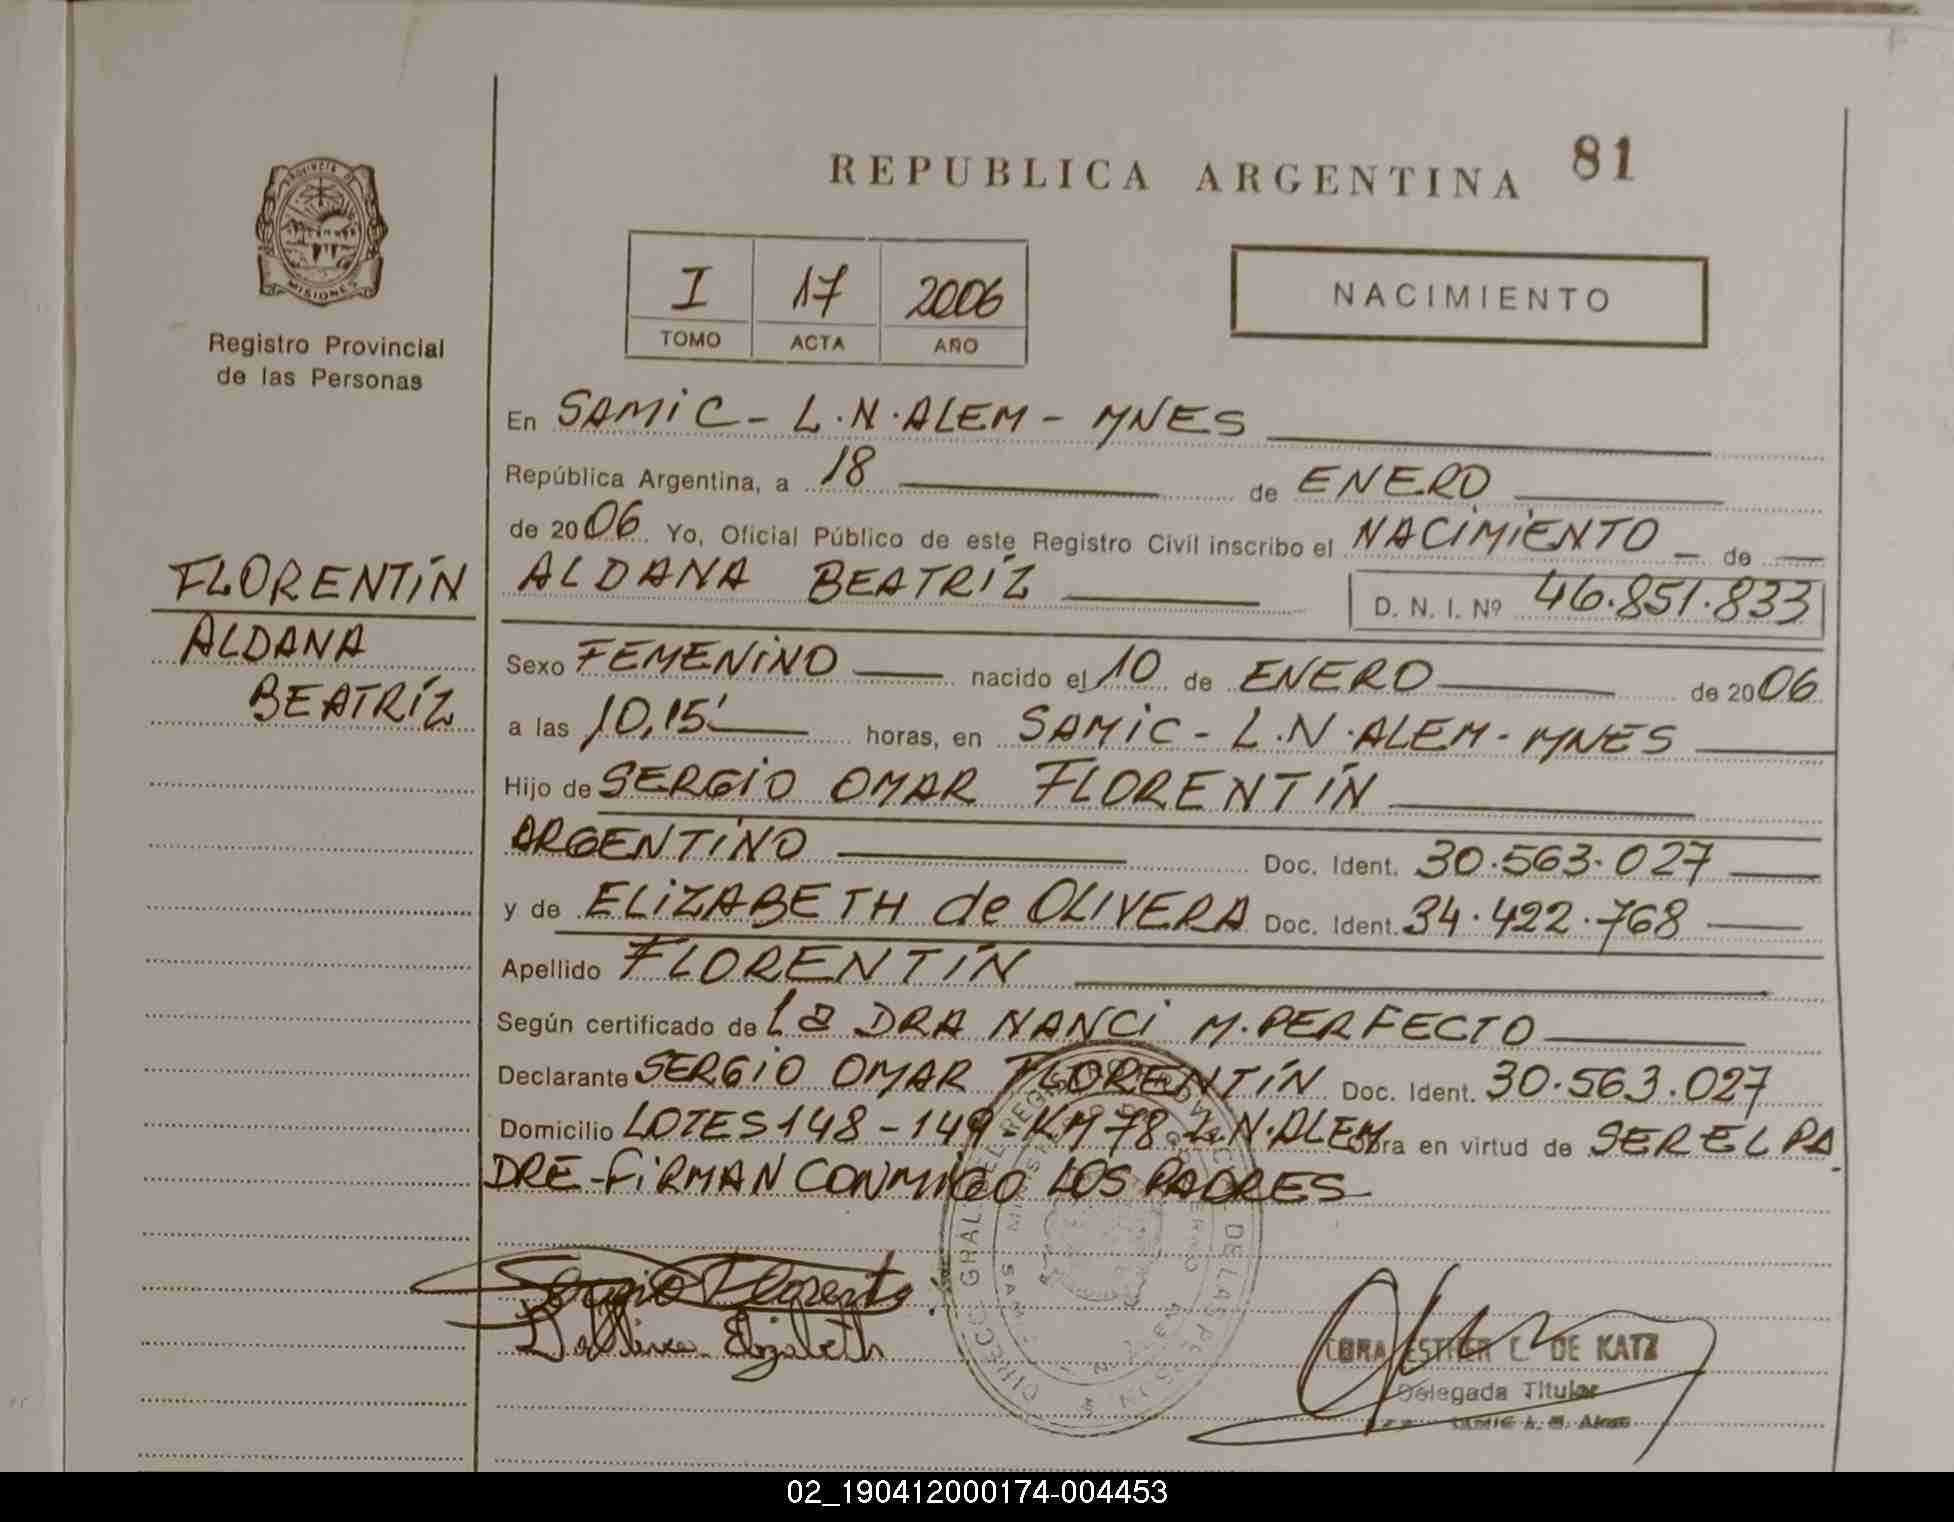 REPUBLICA ARGENTINA 81
PROVINCIA DE
MISIONES
Registro Provincial
de las Personas
I 17 2006
TOMO ACTA AÑO
NACIMIENTO
En SAMIC - L.N.ALEM - MNES
República Argentina, a 18 de ENERO
de 2006 Yo, Oficial Público de este Registro Civil inscribo el NACIMIENTO de
FLORENTÍN
ALDANA
BEATRÍZ
ALDANA BEATRÍZ D. N. I. Nº 46.851.833
Sexo FEMENINO nacido el 10 de ENERO de 2006
a las 10,15' horas, en SAMIC - L.N.ALEM - MNES
Hijo de SERGIO OMAR FLORENTÍN
ARGENTINO Doc. Ident. 30.563.027
y de ELIZABETH de OLIVERA Doc. Ident. 34.422.768
Apellido FLORENTÍN
Según certificado de La DRA NANCI M. PERFECTO
Declarante SERGIO OMAR FLORENTÍN Doc. Ident. 30.563.027
Domicilio LOTES 148 - 149 - KM 78 L.N.ALEM obra en virtud de SER EL PA
DRE - FIRMAN CONMIGO LOS PADRES
Sergio Florentín
Elizabeth
ESTHER C. DE KATZ
Delegada Titular
02_190412000174-004453